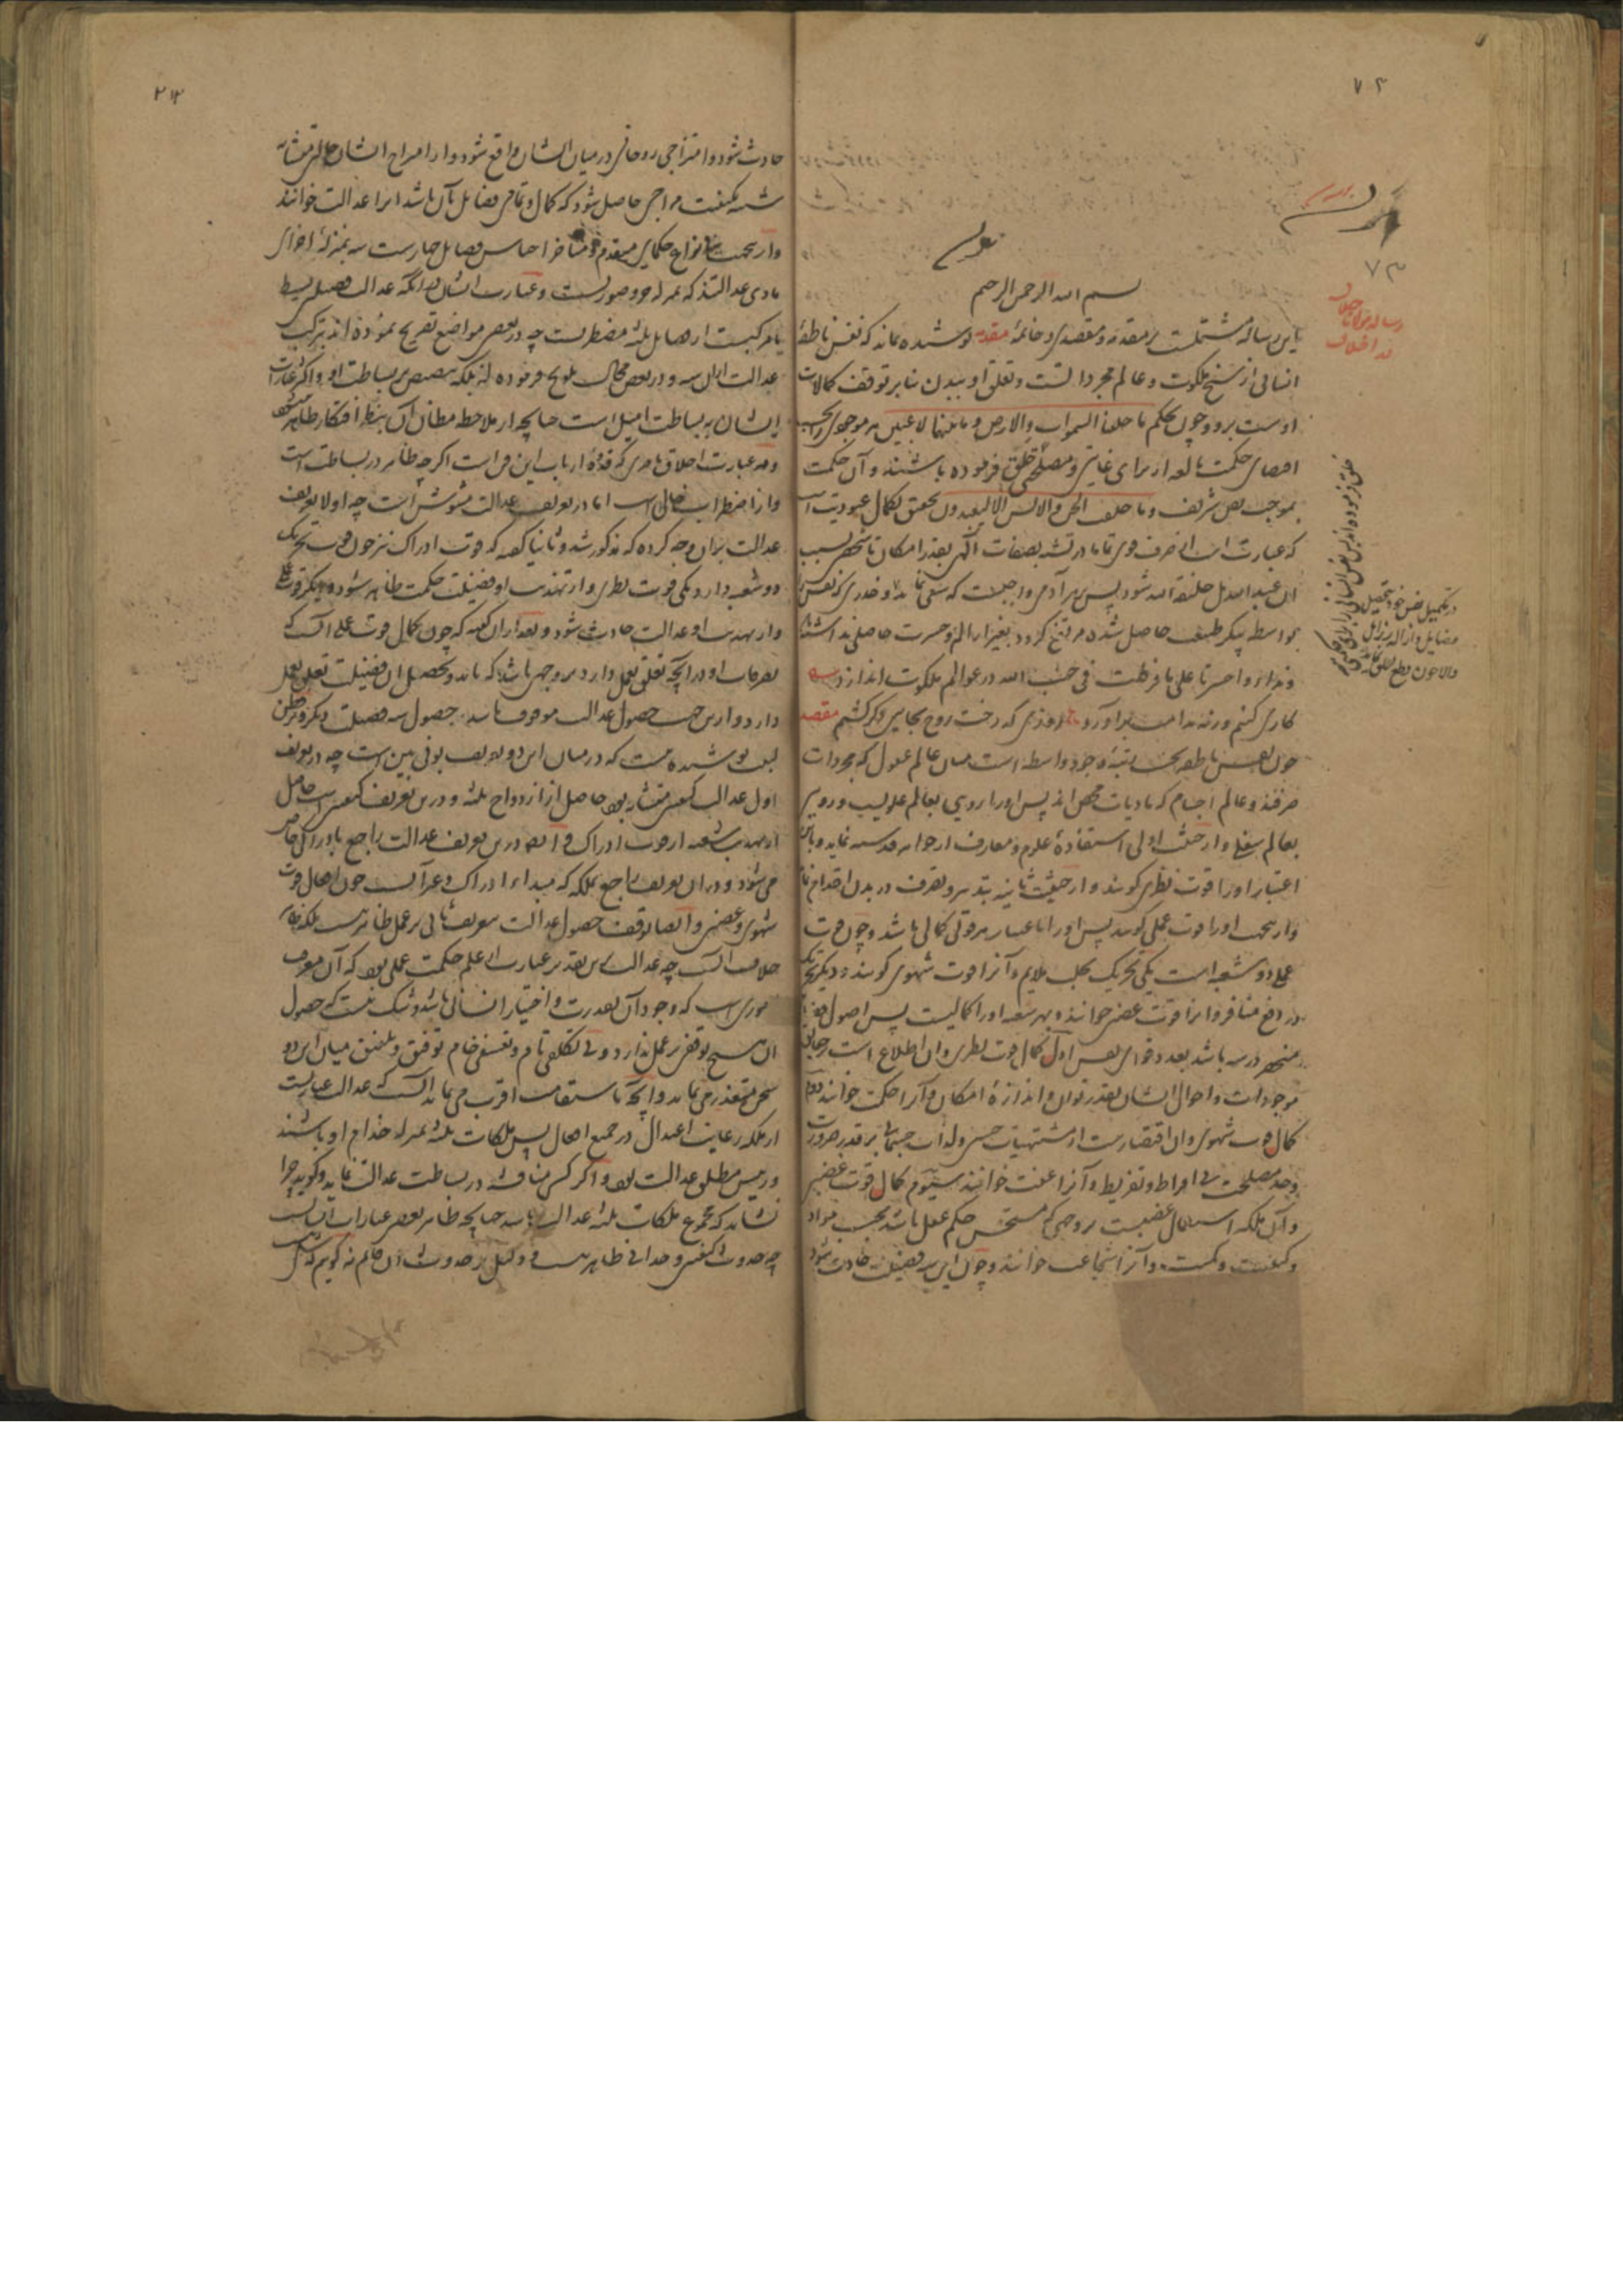 ۷۲
۷۳
رساله مولانا جلال
در اخلاق
بسم الله الرحمن الرحیم
این رساله مشتملست بر مقدمه و مقصدی و خاتمه مقدمه پوشیده نماند که نفس ناطقهٔ
انسانی از سنخ ملکوت و عالم مجرداتست و تعلق او ببدن بنابر توقف کمالات
اوست برو و چون بحکم ما خلقنا السموات والارض و ما بینهما لاعبین هر موجودی را بحسب
اقتضای حکمت بالغه از برای غایتی و مصلحتی خلق فرموده باشند و آن حکمت
بموجب نص شریف و ما خلقت الجن والانس الا لیعبدون تحقق بکمال عبودیت است
که عبارت است از صرف قوی تمامادر تشبه بصفات الهی بقدر امکان تا شخص بسبب
آن عبد الله بل خلیفة الله شود پس بر هر آدمی واجبست که سعی نماید
در تکمیل نفس خود بتحصیل
فضایل و ازاله رذایل
والا چون قطع تعلق
بواسطه پیکر لطیف حاصل شده مرتفع کردد بغیر از الم و حسرت حاصلی نداشته
و ندای وا حسرتا علی ما فرطت فی جنب الله در عوالم ملکوت اندازد
کاری کنیم ورنه ندامت برآورد روزی که رخت روح بجایی دکر کشیم مقصد
چون نفس ناطقه بحسب رتبه وجود واسطه است میان عالم عقول که مجردات
صرفند و عالم اجسام که مادیات محض اند پس او را رویی بعالم علویست و رویی
بعالم سفلی و از حیثیت اولی استفادهٔ علوم و معارف از جواهر قدسیه نماید و باین
اعتبار او را قوت نظری کویند و از حیثیت ثانیه تدبیر و تصرف در بدن اقدام نماید
و ازین جهت او را قوت عملی کویند پس او را باعتبار هر قوتی کمالی باشد و چون قوت
عملی دو شعبه است یکی تحریک بجلب ملایم و آنرا قوت شهوی کویند و دیگر تحریک
در دفع منافر و آنرا قوت غضبی خوانند و هر شعبه او را کمالیست پس اصول فضایل
منحصر در سه باشد بعدد قوای نفس اول کمال قوت نظری و آن اطلاع است بر حقایق
موجودات و احوال ایشان بقدر توان و اندازهٔ امکان و آنرا حکمت خوانند دوم
کمال قوت شهوی و آن اقتصارست از مشتهیات حسی و لذات جسمانی بر قدر ضرورت
وحد مصلحت بی افراط و تفریط و آنرا عفت خوانند سیوم کمال قوت غضبی
و آن ملکه استعمال غضبست بر وجهی که مستحسن حکم عقل باشد بحسب مواد
و کیفیت و کمیت و آنرا شجاعت خوانند و چون این سه فضیلت حادث شود
۲۱۳
حادث شود و امتزاجی روحانی در میان ایشان واقع شود و از امتزاج ایشان حالتی متشابه
شبیه بکیفیت مزاجی حاصل شود که کمال و تمامی فضایل بآن باشد آنرا عدالت خوانند
و ازین جهت حکمای متقدم و متاخر اجناس فضایل چهارست سه بمنزلهٔ اجزای
مادی عدالتند که بمنزله جزو صوریست و عبارت ایشان در آنکه عدالت فضیلتی بسیط
یا مرکبست از فضایل ثلثه مضطربست چه در بعضی مواضع تصریح نموده اند بترکیب
عدالت از آن سه و در بعضی محال تلویح فرموده اند بلکه تنصیص بر بساطت او و اکثر عبارات
ایشان به بساطت امیل است چنانچه از ملاحظه مظان آن بنظر افتکار ظاهر میشود
و در عبارت اخلاق ناصری که قدوه ارباب این فن است اکرچه ظاهر در بساطت است
و از اضطراب خالی است اما در تعریف عدالت مشوش است چه اولا تعریف
عدالت بر آن وجه کرده که مذکور شد و ثانیا کفته که قوت ادراک نیز چون قوت تحریک
دو شعبه دارد یکی قوت نظری و از تهذیب او فضیلت حکمت ظاهر شود و دیگر قوت عملی
و از تهذیب او عدالت حادث شود و بعد از آن کفته که چون کمال قوت عملی آنست که
تصرفات او در آنچه تعلق بعمل دارد بر وجهی باشد که باید و تحصیل آن فضیلت تعلق بعمل
دارد و ازین جهت حصول عدالت موقوف باشد بر حصول سه فضیلت دیگر و بر فطن
لبیب پوشیده نیست که در میان این دو تعریف بونی بین است چه در تعریف
اول عدالت کیفیتی متشابه بود حاصل از ازدواج ثلثه و درین تعریف کیفیتی است حاصل
از تهذیب شعبه از قوت ادراک و ایضا درین تعریف عدالت راجع بادراکی خاص
می شود و در آن تعریف راجع بملکه که مبداء ادراک و غیر آنست چون افعال قوت
شهوی و غضبی و ایضا توقف حصول عدالت بتعریف ثانی بر عمل ظاهر نیست بلکه ظاهر
خلاف آنست چه عدالت برین تقدیر عبارت از علم حکمت عملی بود که آن معرفت
اموری است که وجود آن بقدرت و اختیار انسانی باشد و شک نیست که حصول
آن هیچ توقفی بر عمل ندارد و بی تکلفی تام و تعسفی خام توفیق و تلفیق میان این دو
سخن متعذر می نماید و آنچه باستقامت اقرب می نماید آنست که عدالت عبارتست
از ملکه رعایت اعتدال در جمیع افعال پس ملکات ثلثه بمنزله خدام او باشند
و رئیس مطلق عدالت بود و اکر کسی مناقشه در بساطت عدالت نماید و کوید چرا
نشاید که مجموع ملکات ثلثه عدالت باشد چنانچه ظاهر بعضی عبارات ایشانست
چه حدوث کیفیتی وحدانی ظاهر نیست و دلیلی بر حدوث آن قایم نه کویم